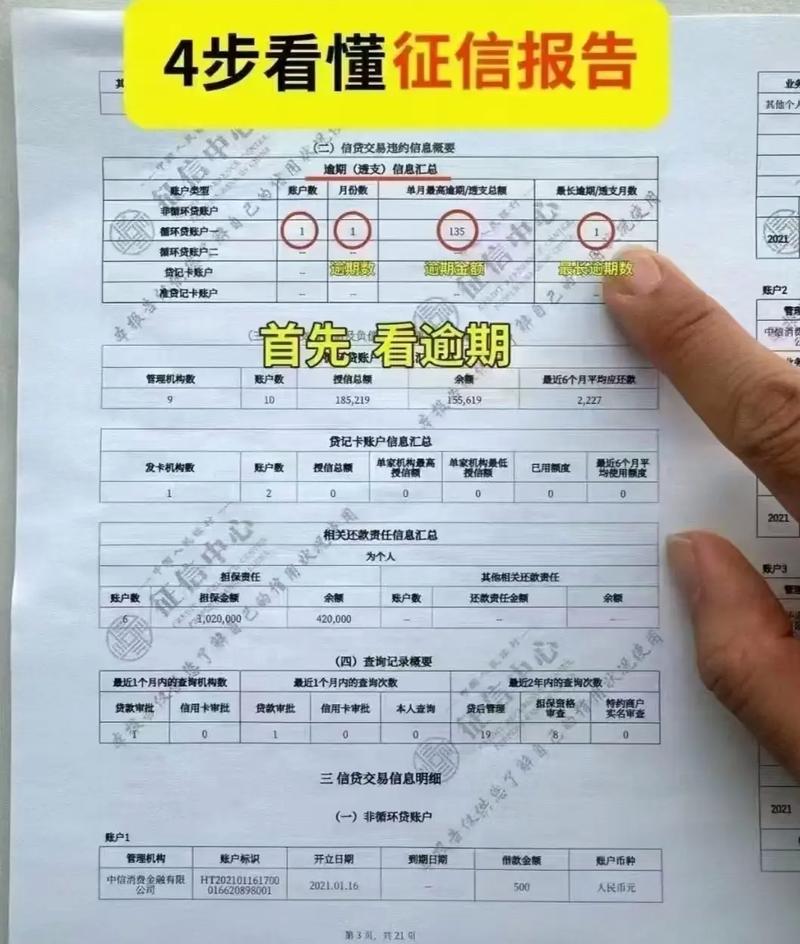 4步看懂征信报告
其
(二) 信贷交易违约信息概要
逾期 (透支) 信息汇总
账户类型 账户数 月份数 单月最高逾期/透支总额 最长逾期/透支月数
非循环贷账户
循环贷账户一 1 1 135 1
循环贷账户二 --
贷记卡账户 -- 逾期数 逾期金额 最长逾期数
准贷记卡账户 -- -- -- --
首先 看逾期
管理机构数 账户数 授信总额 余额 最近6个月平均应还款
9 10 185,219 155,619 2,227
贷记卡账户信息汇总
发卡机构数 账户数 授信总额 单家机构最高授信额 单家机构最低授信额 已用额度 最近6个月平均使用额度
1 2 0 0 0 0 0
相关还款责任信息汇总
为个人
担保责任 其他相关还款责任
账户数 担保金额 余额 账户数 还款责任金额 余额
6 1,020,000 420,000 -- -- --
(四) 查询记录概要
最近1个月内的查询机构数 最近1个月内的查询次数 最近2年内的查询次数
贷款审批 信用卡审批 贷款审批 信用卡审批 本人查询 贷后管理 担保资格审查 特约商户实名审查
1 0 1 0 0 19 8 0
三 信贷交易信息明细
(一) 非循环贷账户
账户1
管理机构 账户标识 开立日期 到期日期 借款金额 账户币种
中信消费金融有限公司 HT202101161700016620898001 2021.01.16 -- 500 人民币元
第 3 页, 共 21 页
征信中心
本报告仅供您了解自己的信用状况使用
业务
其他个人
2021
账户2
管理
中信消费
公
2021
账户3
管理
2021